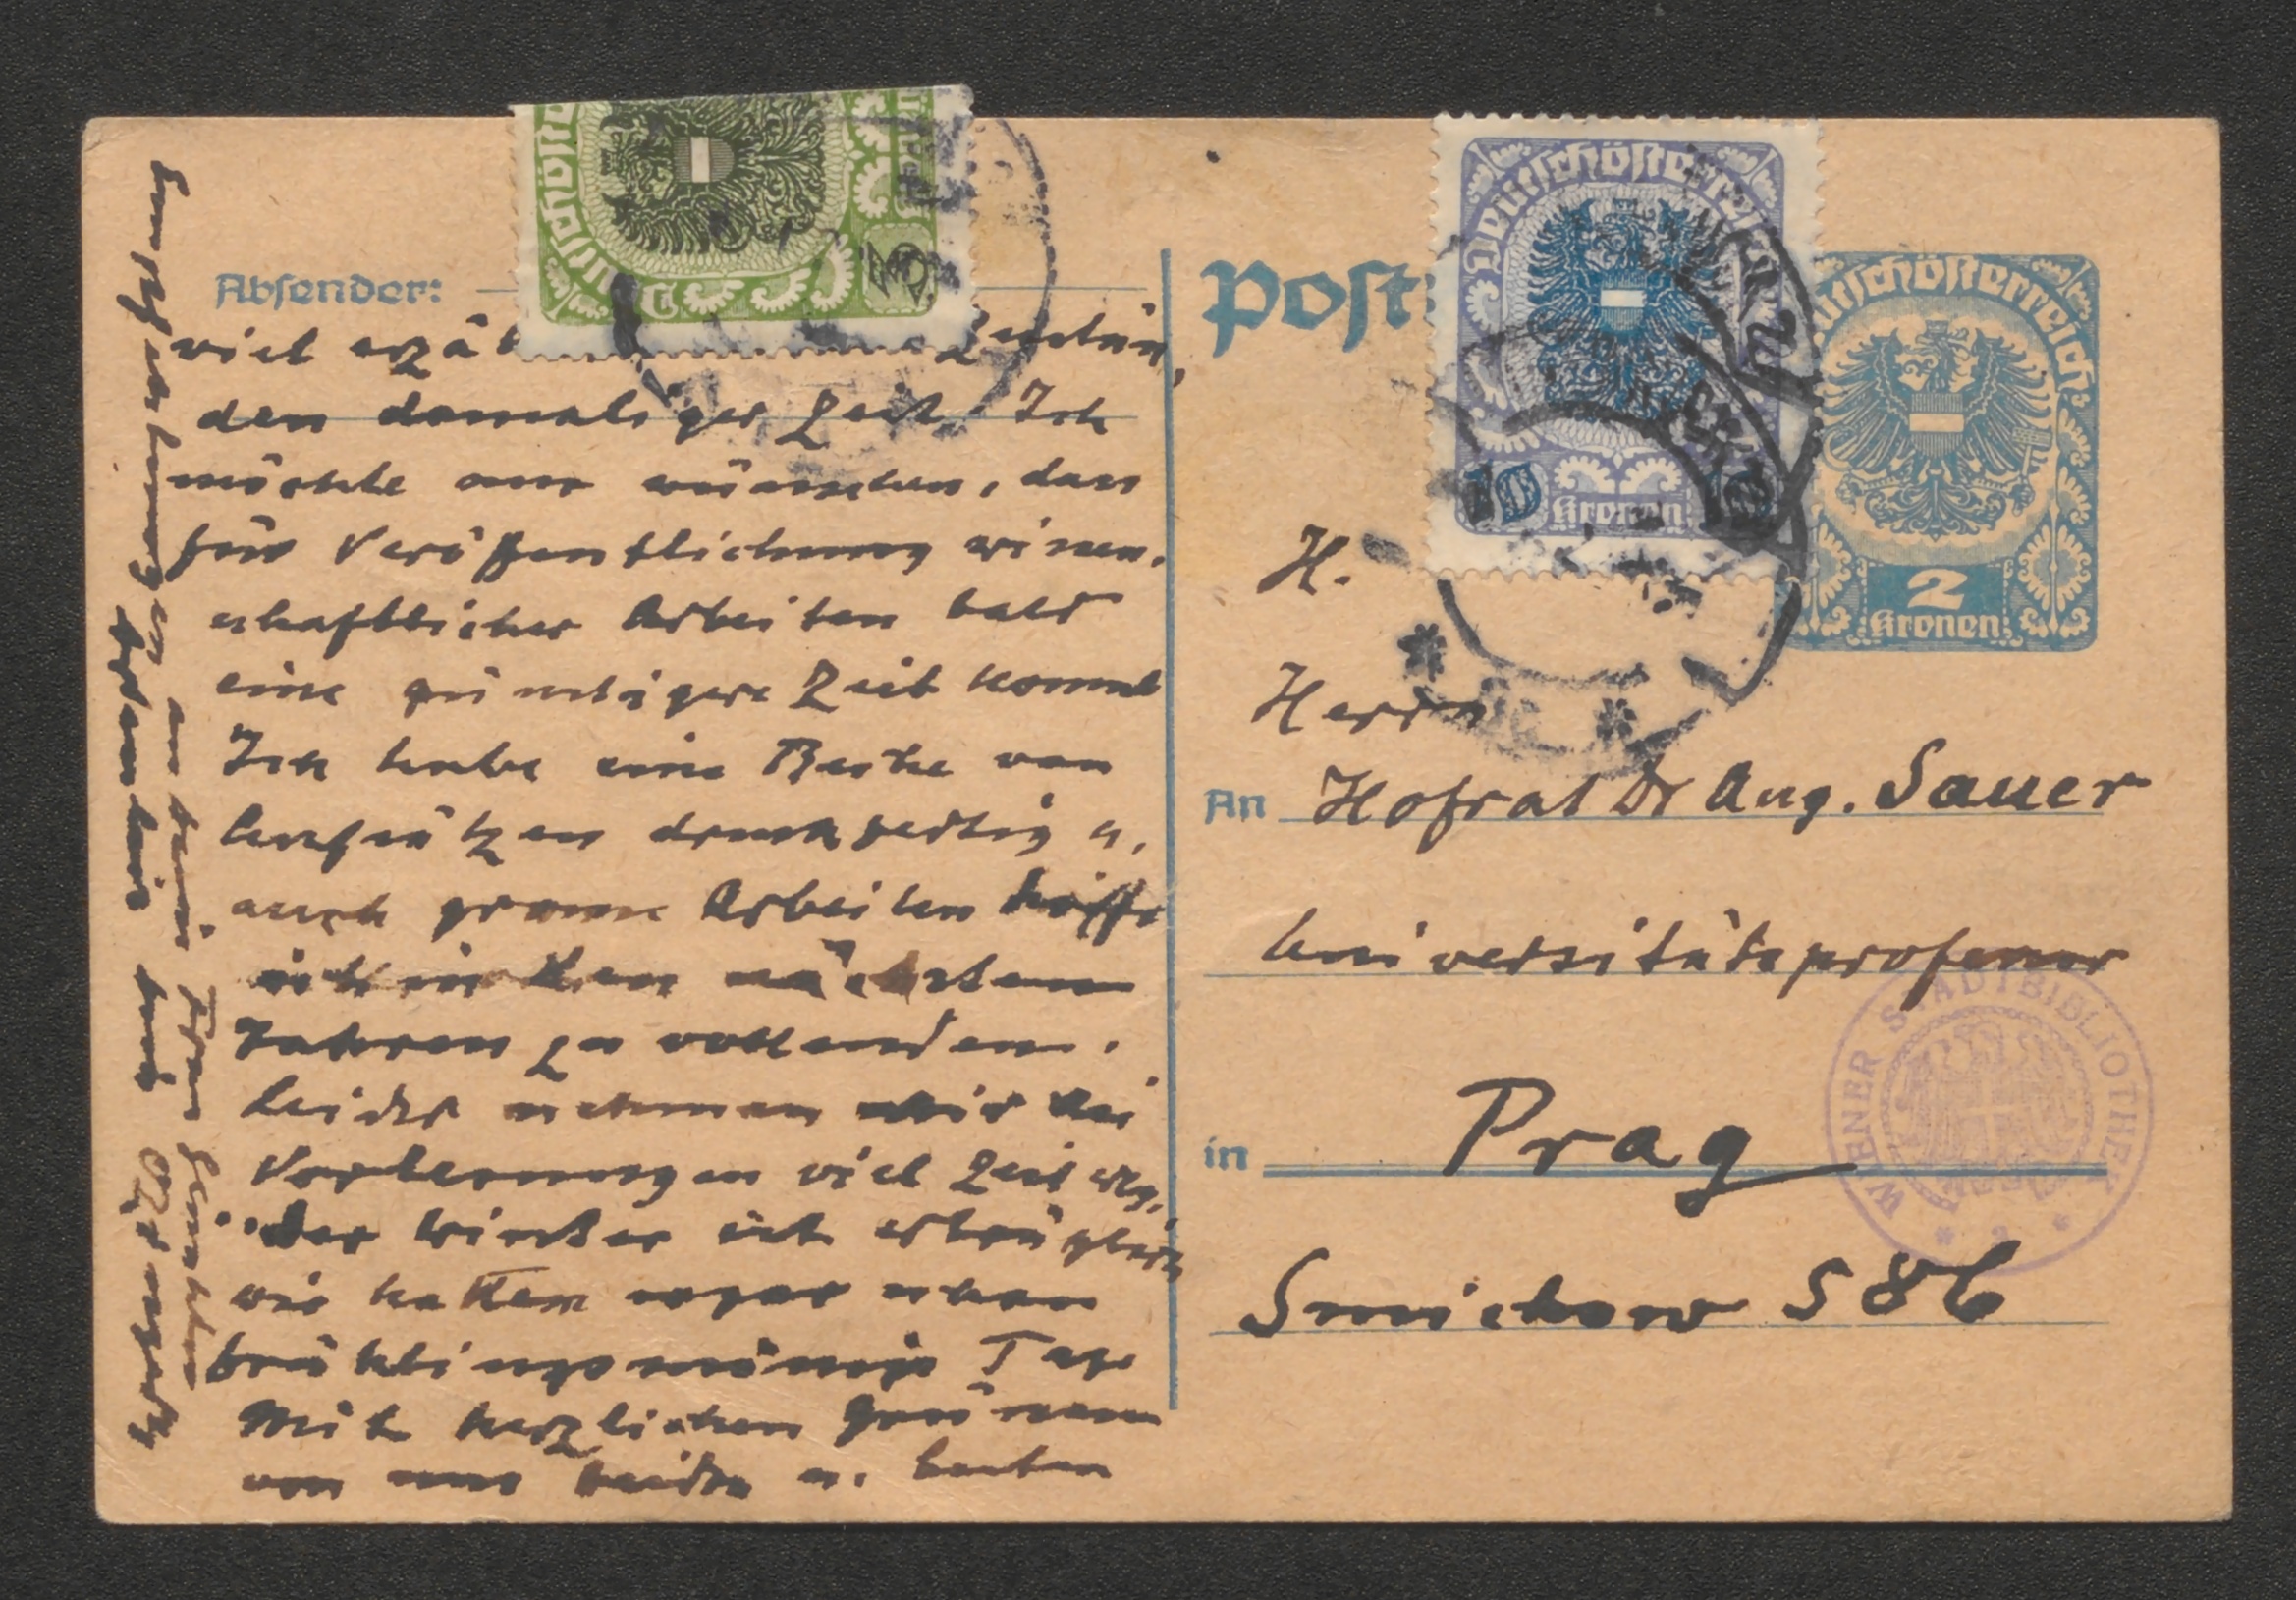 Absender:
viel erzäh
den damaliger Zeit. Ich
möchte nur wünschen, dass
für Veröffentlichung wissen-
schaftlicher Arbeiten bald
eine günstigere Zeit kommt
Ich habe eine Reihe von
Aufsätzen druckfertig u.
auch grosse Arbeiten hoffe
ich in den nächsten
Jahren zu vollenden.
Leider nehmen mir die
Vorlesungen viel Zeit weg.
Der Winter ist erträglich
wir hatten sogar schon
frühlingsmässige Tage
Mit herzlichen Grüssen
von uns beiden u. besten
Empfehlungen an Deine Frau Gemahlin
Dein
Deutschöster
3
Post
Deutschösterreich
10
Kronen
Deutschösterreich
2
Kronen
H.
Herrn
An Hofrat Dr Aug. Sauer
Universitätsprofessor
in Prag
Smichow 586
WIENER STADTBIBLIOTHEK